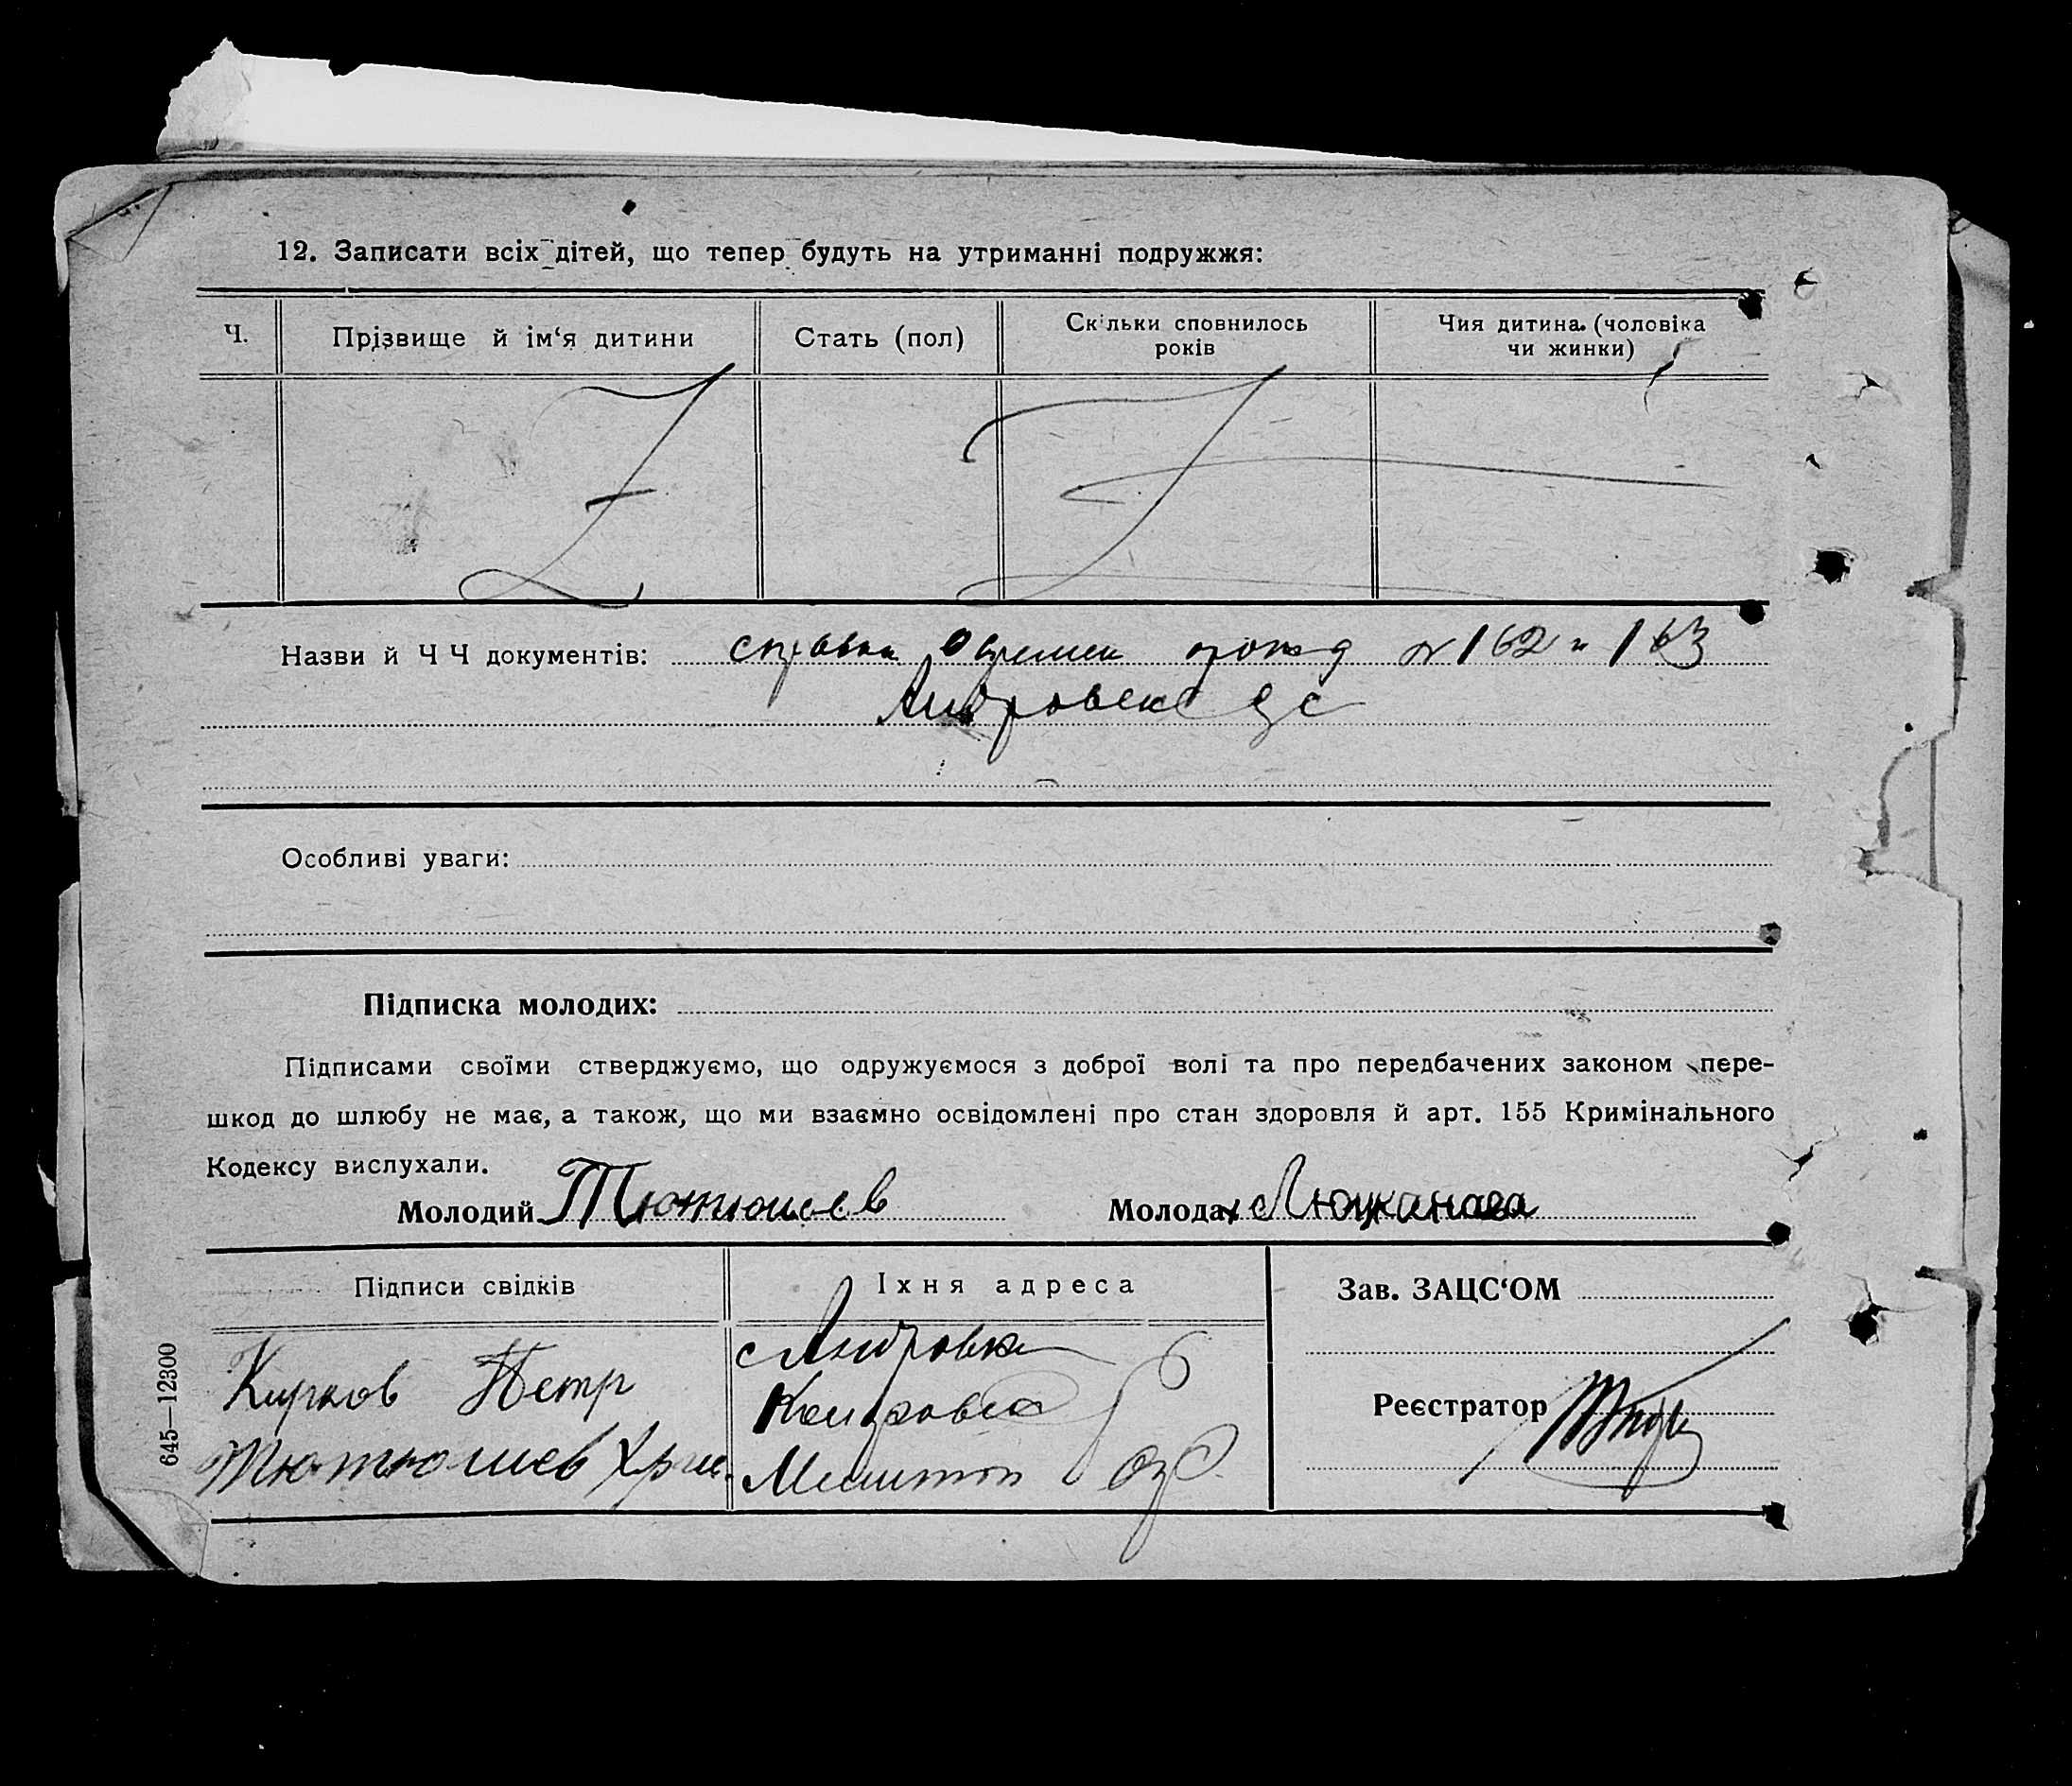 12. Записати всіх дітей, що тепер будуть на утриманні подружжя:
Ч. Прізвище й ім‘я дитини Стать (пол) Скільки сповнилось років Чия дитина (чоловіка чи жинки)
Назви й Ч Ч документів: справки о времен № 162 и 163
Андровск с с
Особливі уваги:
Підписка молодих:
Підписами своїми стверджуємо, що одружуємося з доброї волі та про передбачених законом пере-
шкод до шлюбу не має, а також, що ми взаємно освідомлені про стан здоровля й арт. 155 Кримінального
Кодексу вислухали.
Молодий Тютюшев Молода
Підписи свідків Іхня адреса Зав. ЗАЦС‘ОМ
с Андровка
Курков Петр
Реєстратор
Тютюшев Мелитоп
645—12300